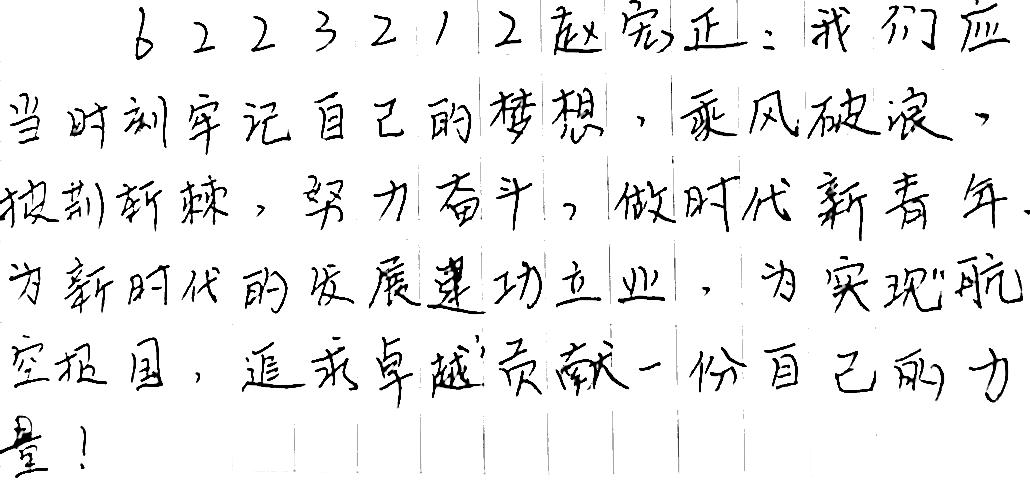 6223212赵宏正：我们应
当时刻牢记自己的梦想，乘风破浪，
披荆斩棘，努力奋斗，做时代新青年，
为新时代的发展建功立业，为实现“航
空报国，追求卓越”贡献一份自己的力
量！